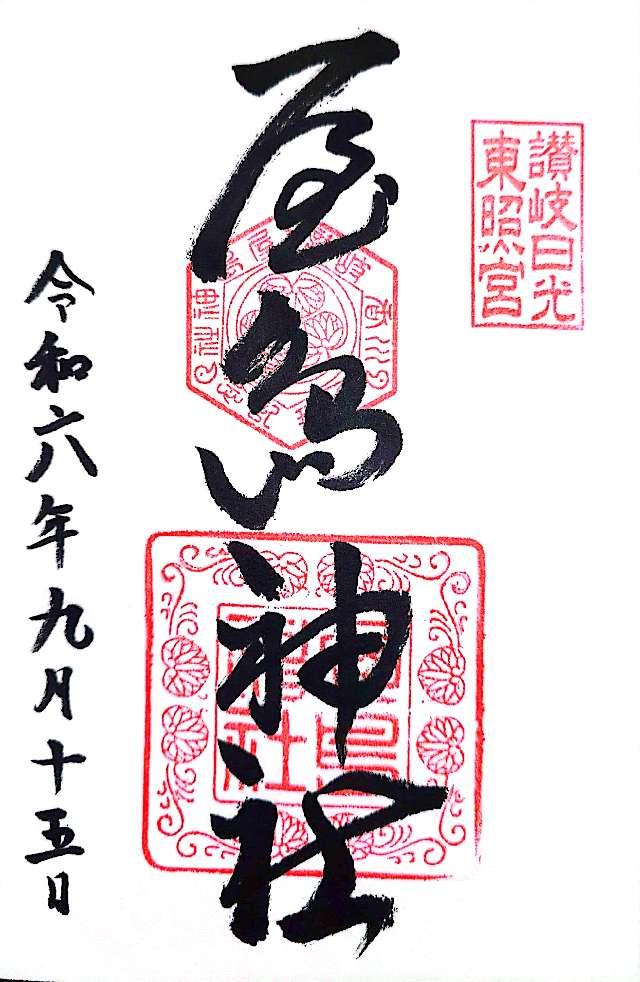 讃岐日光
東照宮
屋島神社
屋島
神社
令和六年九月十五日